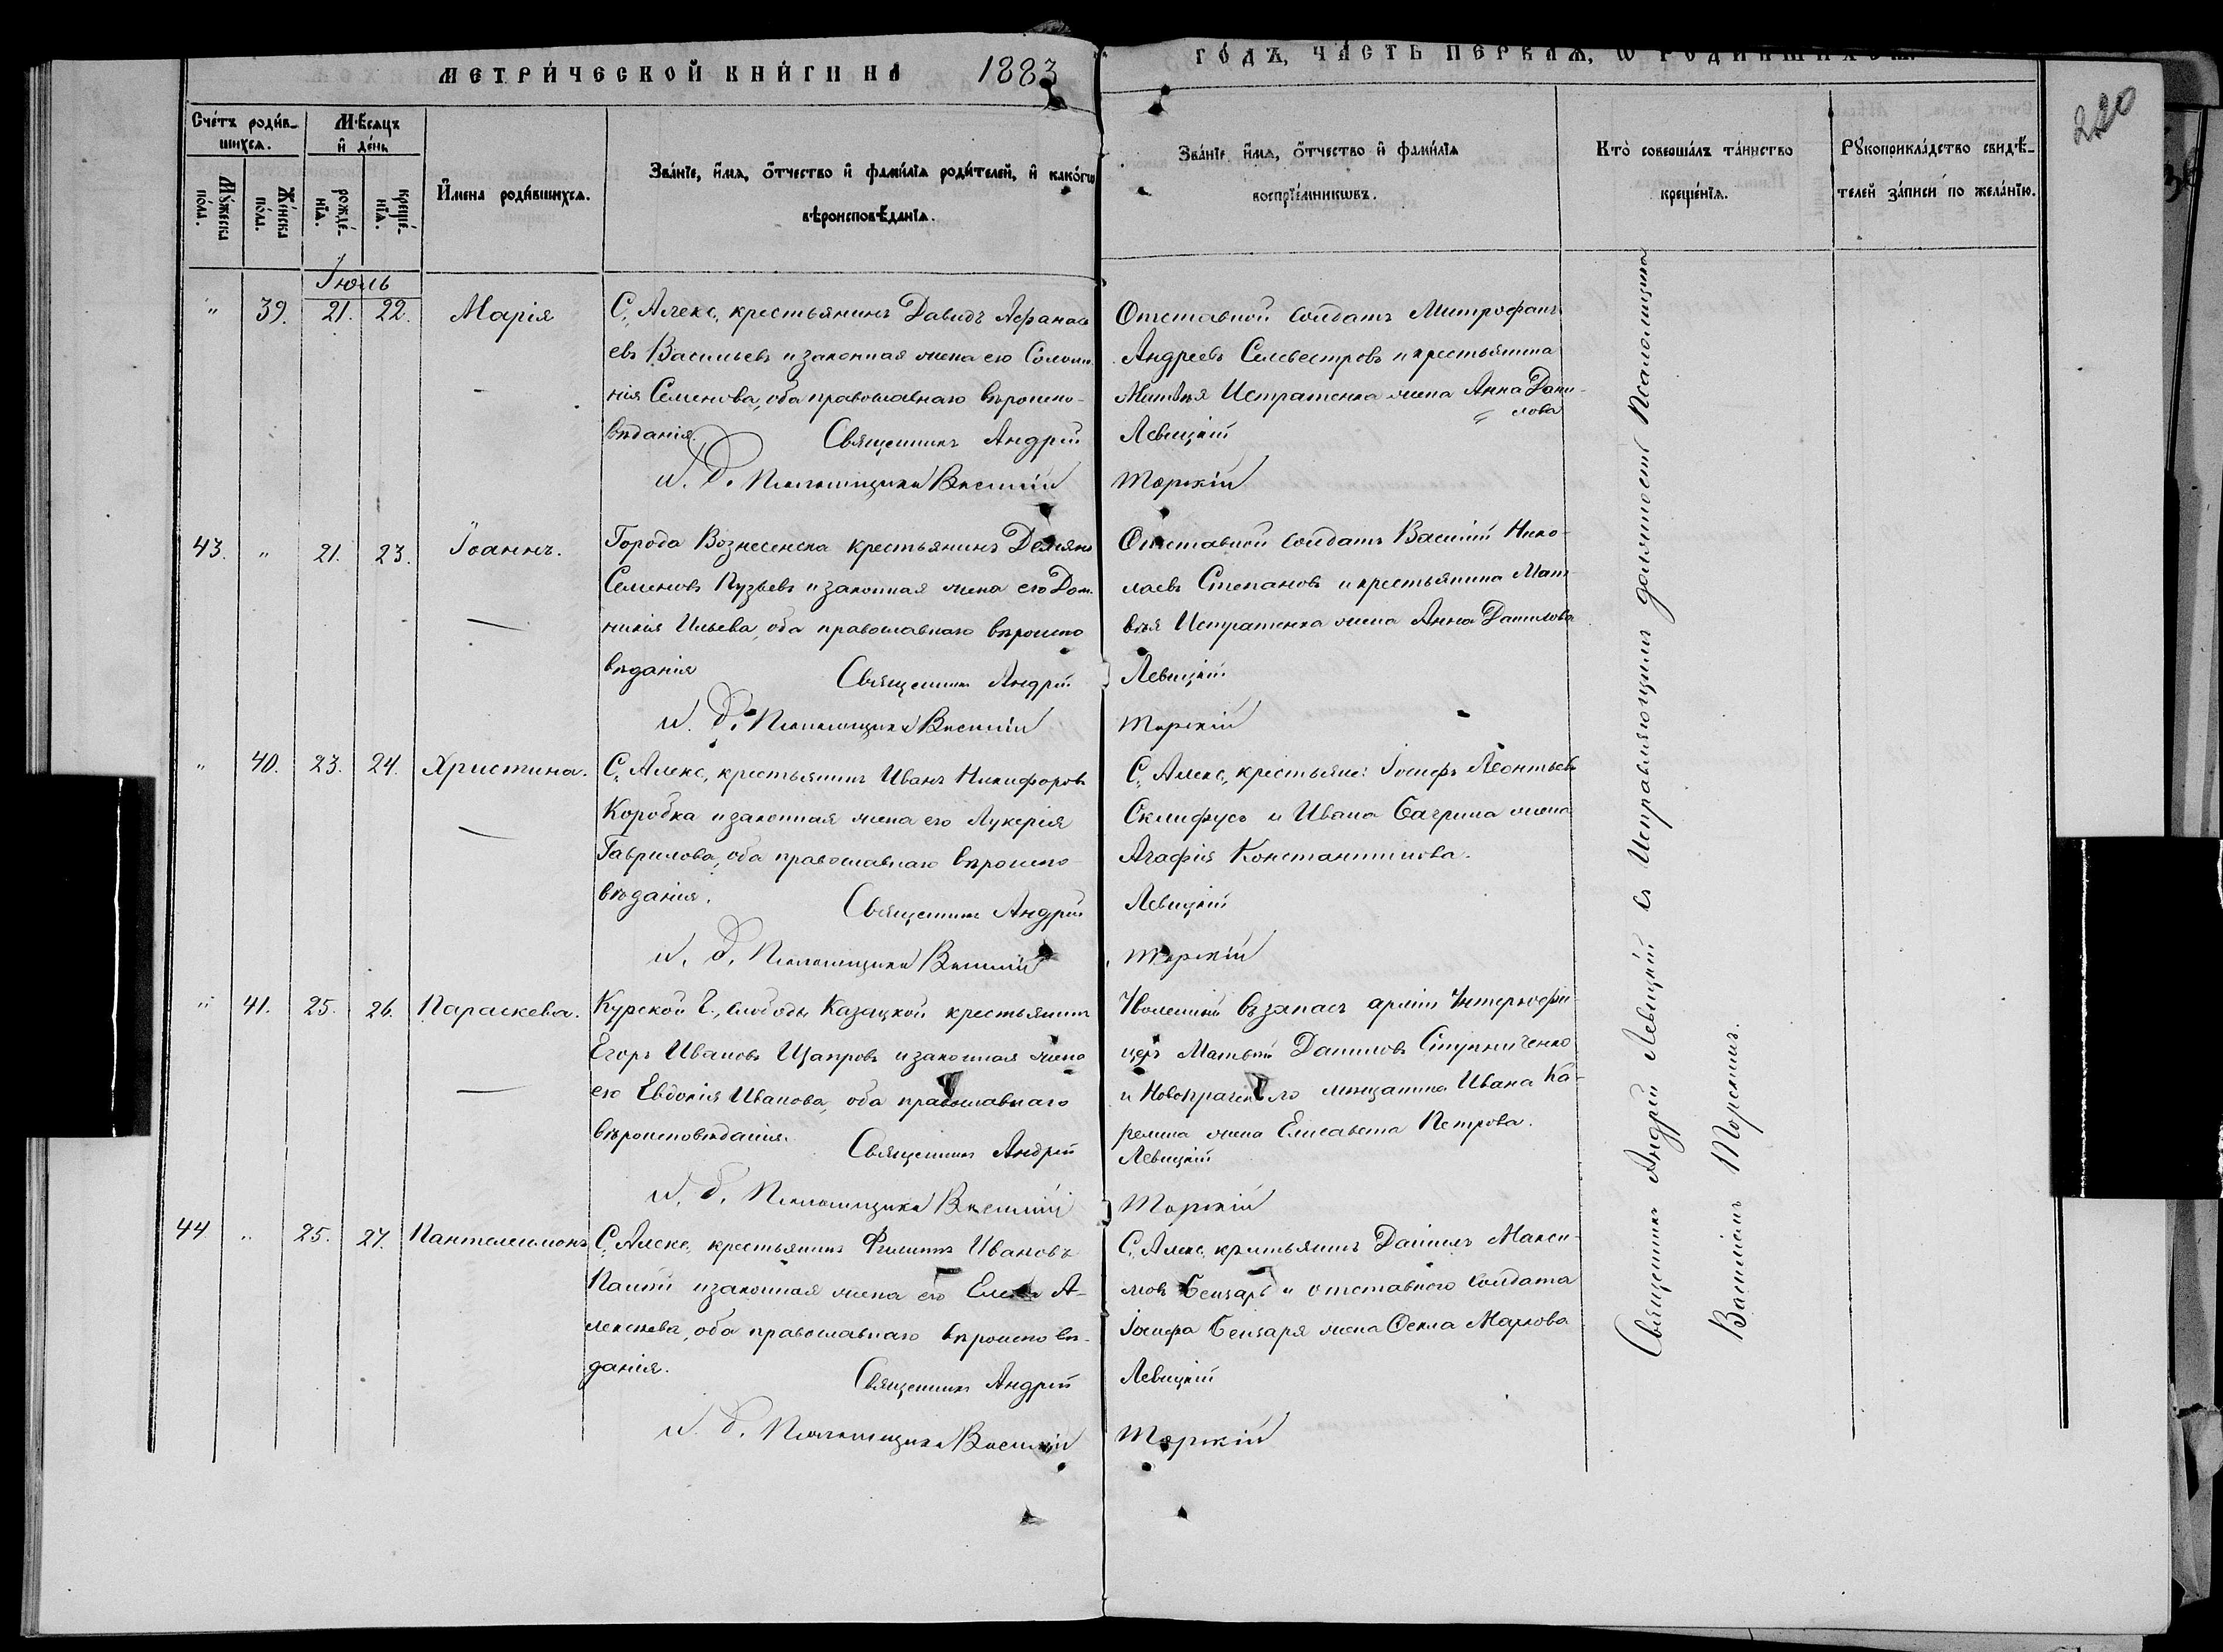 МЕТРИ́ЧЕСКОЙ КНИ́ГИ НА 1883
ГО́ДЪ, ЧА́СТЬ ПЕРВАЯ, Ѡ РОДИ́ВШИХСЯ.
220
Сче́тъ роди́в-
шихся.
Мꙋ́жеска
по́ла.
Же́нска
по́ла.
Мѣ́сяцъ
и҆ де́нь
рожде́-
нїѧ.
креще́-
нїѧ.
И҆мена роди́вшихсѧ.
Зва́нїе, и҆́мѧ, ѻ҆́тчество и҆ фами́лїѧ роди́телей, и҆ како́гѡ
вѣроисповѣ́данїѧ.
Зва́нїе, и҆́мѧ, ѻ҆́тчество и҆ фами́лїѧ
воспрїе́мникѡвъ.
Кто̀ соверша́лъ та́инство
креще́нїѧ.
Рꙋкоприкла́дство свидѣ́-
телей за́писи по жела́нїю.
Іюль
" 39. 21. 22. Марія
С. Алекс., крестьянинъ Давидъ Афанась
евъ Васильевъ и законная жена его Соломо
нія Семенова, оба православнаго вѣроиспо-
вѣданія. Священникъ Андрей
и. д. Псаломщика Василій
Отставной солдатъ Митрофанъ
Андреевъ Селвестровъ и крестьянина
Матвѣя Истратенка жена Анна Дани-
лова
Левицкій
Торскій
43. " 21. 23. Іоаннъ.
Города Вознесенска крестьянинъ Демьянъ
Семеновъ Пузьевъ и законная жена его Дом
никія Ильева, оба православнаго вѣроиспо
вѣданія Священникъ Андрей
и. д. Псаломщика Василій
Отставной солдатъ Василій Нико-
лаевъ Степановъ и крестьянина Мат
вѣя Истратенка жена Анна Данилова
Левицкій
Торскій
" 40. 23. 24. Христина.
С. Алекс., крестьянинъ Иванъ Никифоровъ
Коробка и законная жена его Лукерія
Гаврилова, оба православнаго вѣроиспо-
вѣданія. Священникъ Андрей
и. д. Псаломщика Василій
С. Алекс., крестьяне: Іосифъ Леонтьевъ
Склифусъ и Ивана Багрина жена
Агафія Константинова.
Левицкій
Торскій
" 41. 25. 26. Параскева.
Курской Г., слободы Казацкой крестьянинъ
Егоръ Ивановъ Щапровъ и законная жена
его Евдокія Иванова, оба православнаго
вѣроисповѣданія. Священникъ Андрей
и. д. Псаломщика Василій
Уволенный въ запасъ арміи Унтеръ-офи-
церъ Матвѣй Даниловъ Ступниченко
и мещанина Ивана Ка-
релина жена Елисавета Петрова.
Левицкій
Торскій
44 " 25. 27. Пантелеимонъ
С. Алекс., крестьянинъ Филиппъ Ивановъ
и законная жена его Елена А-
лексѣева, оба православнаго вѣроисповѣ-
данія. Священникъ Андрей
и. д. Псаломщика Василій
С. Алекс. крестьянинъ Даніилъ Макси-
мовъ Бенгарь и отставного солдата
Іосифа Бенгаря жена Ѳекла Маркова
Левицкій
Торскій
Священникъ Андрей Левицкій съ Исправляющимъ должность Псаломщика
Василіемъ Торскимъ.